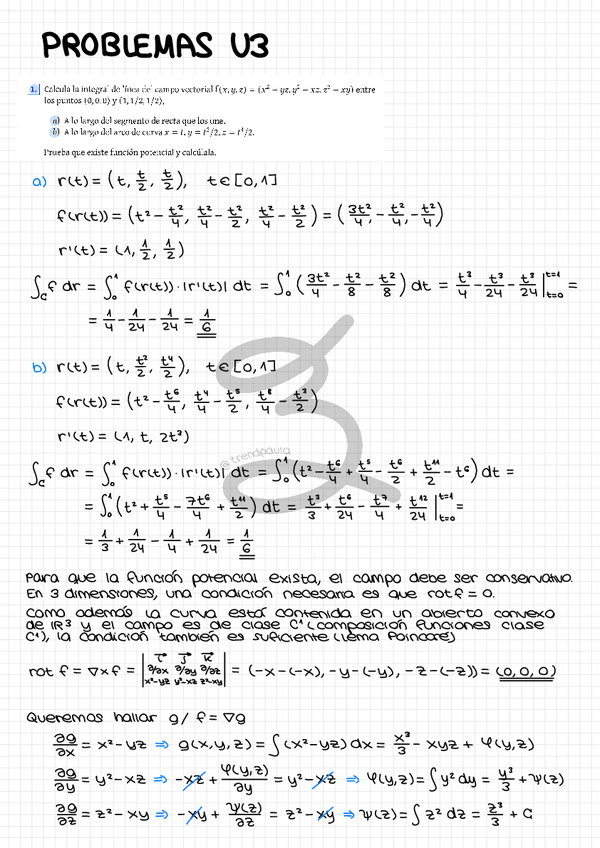 PROBLEMAS U3
1. Calcula la integral de línea del campo vectorial f(x, y, z) = (x² − yz, y² − xz, z² − xy) entre
los puntos (0, 0, 0) y (1, 1/2, 1/2),
a) A lo largo del segmento de recta que los une.
b) A lo largo del arco de curva x = t, y = t²/2, z = t⁴/2.
Prueba que existe función potencial y calcúlala.
a) r(t) = (t, t/2, t/2), t ∈ [0,1]
f(r(t)) = (t² − t²/4, t²/4 − t²/2, t²/4 − t²/2) = (3t²/4, −t²/4, −t²/4)
r'(t) = (1, 1/2, 1/2)
∫_C f dr = ∫₀¹ f(r(t)) · |r'(t)| dt = ∫₀¹ (3t²/4 − t²/8 − t²/8) dt = t³/4 − t³/24 − t³/24 |t=1 t=0 =
= 1/4 − 1/24 − 1/24 = 1/6
b) r(t) = (t, t²/2, t⁴/2), t ∈ [0,1]
f(r(t)) = (t² − t⁶/4, t⁴/4 − t⁵/2, t⁸/4 − t³/2)
r'(t) = (1, t, 2t³)
@trendpaula
∫_C f dr = ∫₀¹ f(r(t)) · |r'(t)| dt = ∫₀¹ (t² − t⁶/4 + t⁵/4 − t⁶/2 + t¹¹/2 − t⁶) dt =
= ∫₀¹ (t² + t⁵/4 − 7t⁶/4 + t¹¹/2) dt = t³/3 + t⁶/24 − t⁷/4 + t¹²/24 |t=1 t=0 =
= 1/3 + 1/24 − 1/4 + 1/24 = 1/6
Para que la función potencial exista, el campo debe ser conservativo.
En 3 dimensiones, una condición necesaria es que rot f = 0.
Como además la curva está contenida en un abierto convexo
de ℝ³ y el campo es de clase C¹ (composición funciones clase
C¹), la condición también es suficiente (Lema Poincaré)
rot f = ∇ × f = | i j k ; ∂/∂x ∂/∂y ∂/∂z ; x²−yz y²−xz z²−xy | = (−x−(−x), −y−(−y), −z−(−z)) = (0,0,0)
Queremos hallar g / f = ∇g
∂g/∂x = x² − yz ⇒ g(x,y,z) = ∫(x² − yz) dx = x³/3 − xyz + φ(y,z)
∂g/∂y = y² − xz ⇒ −xz + φ(y,z)/∂y = y² − xz ⇒ φ(y,z) = ∫ y² dy = y³/3 + ψ(z)
∂g/∂z = z² − xy ⇒ −xy + ψ(z)/∂z = z² − xy ⇒ ψ(z) = ∫ z² dz = z³/3 + C